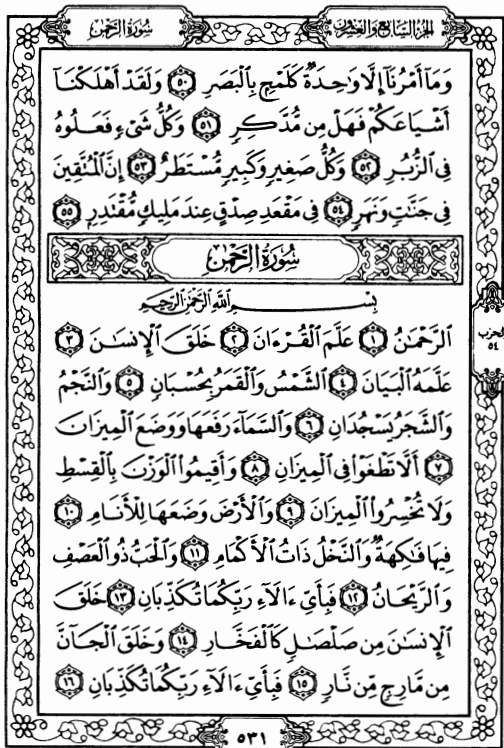 سُورَةُ الرَّحْمَٰن
الجُزْءُ السَّابِعُ وَالعِشْرُونَ
وَمَآ أَمْرُنَآ إِلَّا وَٰحِدَةٌ كَلَمْحٍۭ بِٱلْبَصَرِ ٥٠ وَلَقَدْ أَهْلَكْنَآ
أَشْيَاعَكُمْ فَهَلْ مِن مُّدَّكِرٍ ٥١ وَكُلُّ شَىْءٍ فَعَلُوهُ
فِى ٱلزُّبُرِ ٥٢ وَكُلُّ صَغِيرٍ وَكَبِيرٍ مُّسْتَطَرٌ ٥٣ إِنَّ ٱلْمُتَّقِينَ
فِى جَنَّٰتٍ وَنَهَرٍ ٥٤ فِى مَقْعَدِ صِدْقٍ عِندَ مَلِيكٍ مُّقْتَدِرٍۭ ٥٥
سُورَةُ الرَّحْمَٰن
بِسْمِ ٱللَّهِ ٱلرَّحْمَٰنِ ٱلرَّحِيمِ
ٱلرَّحْمَٰنُ ١ عَلَّمَ ٱلْقُرْءَانَ ٢ خَلَقَ ٱلْإِنسَٰنَ ٣
عَلَّمَهُ ٱلْبَيَانَ ٤ ٱلشَّمْسُ وَٱلْقَمَرُ بِحُسْبَانٍ ٥ وَٱلنَّجْمُ
وَٱلشَّجَرُ يَسْجُدَانِ ٦ وَٱلسَّمَآءَ رَفَعَهَا وَوَضَعَ ٱلْمِيزَانَ
٧ أَلَّا تَطْغَوْا۟ فِى ٱلْمِيزَانِ ٨ وَأَقِيمُوا۟ ٱلْوَزْنَ بِٱلْقِسْطِ
وَلَا تُخْسِرُوا۟ ٱلْمِيزَانَ ٩ وَٱلْأَرْضَ وَضَعَهَا لِلْأَنَامِ ١٠
فِيهَا فَٰكِهَةٌ وَٱلنَّخْلُ ذَاتُ ٱلْأَكْمَامِ ١١ وَٱلْحَبُّ ذُو ٱلْعَصْفِ
وَٱلرَّيْحَانُ ١٢ فَبِأَىِّ ءَالَآءِ رَبِّكُمَا تُكَذِّبَانِ ١٣ خَلَقَ
ٱلْإِنسَٰنَ مِن صَلْصَٰلٍ كَٱلْفَخَّارِ ١٤ وَخَلَقَ ٱلْجَآنَّ
مِن مَّارِجٍ مِّن نَّارٍ ١٥ فَبِأَىِّ ءَالَآءِ رَبِّكُمَا تُكَذِّبَانِ ١٦
الحزب
٥٤
٥٣١